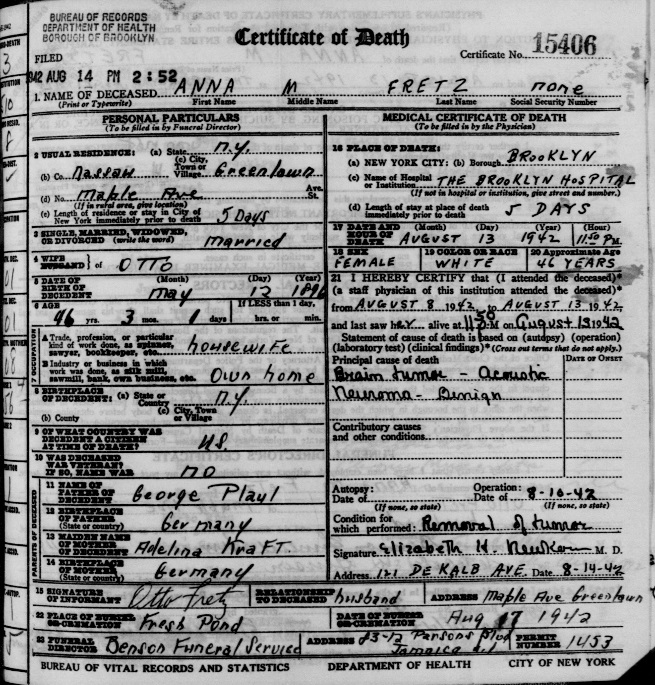 BUREAU OF RECORDS
DEPARTMENT OF HEALTH
BOROUGH OF BROOKLYN
Certificate of Death
FILED
Certificate No. 15406
1942 AUG 14 PM 2:52
1. NAME OF DECEASED ANNA M FRETZ none
(Print or Typewrite) First Name Middle Name Last Name Social Security Number
PERSONAL PARTICULARS
(To be filled in by Funeral Director)
2 USUAL RESIDENCE: (a) State N.Y.
(b) Co. Nassau (c) City, Town or Village Greenlawn
(d) No. Maple Ave Ave. St.
(If in rural area, give location)
(e) Length of residence or stay in City of New York immediately prior to death 5 Days
3 SINGLE, MARRIED, WIDOWED, OR DIVORCED (write the word) married
4 WIFE HUSBAND } of OTTO
5 DATE OF BIRTH OF DECEDENT (Month) May (Day) 12 (Year) 1896
6 AGE 46 yrs. 3 mos. 1 days If LESS than 1 day, hrs. or min.
7 OCCUPATION
A Trade, profession, or particular kind of work done, as spinner, sawyer, bookkeeper, etc. housewife
B Industry or business in which work was done, as silk mill, sawmill, bank, own business, etc. Own home
8 BIRTHPLACE OF DECEDENT: (a) State or Country N.Y.
(b) County (c) City, Town or Village
9 OF WHAT COUNTRY WAS DECEDENT A CITIZEN AT TIME OF DEATH? US
10 WAS DECEASED WAR VETERAN? IF SO, NAME WAR no
PARENTS OF DECEASED
11 NAME OF FATHER OF DECEDENT George Playl
12 BIRTHPLACE OF FATHER (State or country) Germany
13 MAIDEN NAME OF MOTHER OF DECEDENT Adelina Kraft.
14 BIRTHPLACE OF MOTHER (State or country) Germany
MEDICAL CERTIFICATE OF DEATH
(To be filled in by the Physician)
16 PLACE OF DEATH:
(a) NEW YORK CITY: (b) Borough BROOKLYN
(c) Name of Hospital or Institution THE BROOKLYN HOSPITAL
(If not in hospital or institution, give street and number.)
(d) Length of stay at place of death immediately prior to death 5 DAYS
17 DATE AND HOUR OF DEATH (Month) AUGUST (Day) 13 (Year) 1942 (Hour) 11:50 PM.
18 SEX FEMALE 19 COLOR OR RACE WHITE 20 Approximate Age 46 YEARS
21 I HEREBY CERTIFY that (I attended the deceased)*
(a staff physician of this institution attended the deceased)*
from AUGUST 8 1942 to AUGUST 13 1942
and last saw her alive at 11:50 P M on August 13 1942
Statement of cause of death is based on (autopsy) (operation)
(laboratory test) (clinical findings)* (Cross out terms that do not apply.)
Principal cause of death DATE OF ONSET
Brain tumor - Acoustic
Neuroma - Benign
Contributory causes and other conditions
Autopsy: Date of Operation: Date of 8-10-42
(If none, so state) (If none, so state)
Condition for which performed: Removal of tumor
Signature Elizabeth H. M. D.
Address 121 DE KALB AVE. Date 8-14-42
15 SIGNATURE OF INFORMANT Otto Fretz RELATIONSHIP TO DECEASED husband ADDRESS Maple Ave Greenlawn
22 PLACE OF BURIAL OR CREMATION Fresh Pond DATE OF BURIAL OR CREMATION Aug 17 1942
23 FUNERAL DIRECTOR Benson Funeral Service ADDRESS 83-12 Parsons Blvd Jamaica L.I PERMIT NUMBER 1453
BUREAU OF VITAL RECORDS AND STATISTICS DEPARTMENT OF HEALTH CITY OF NEW YORK